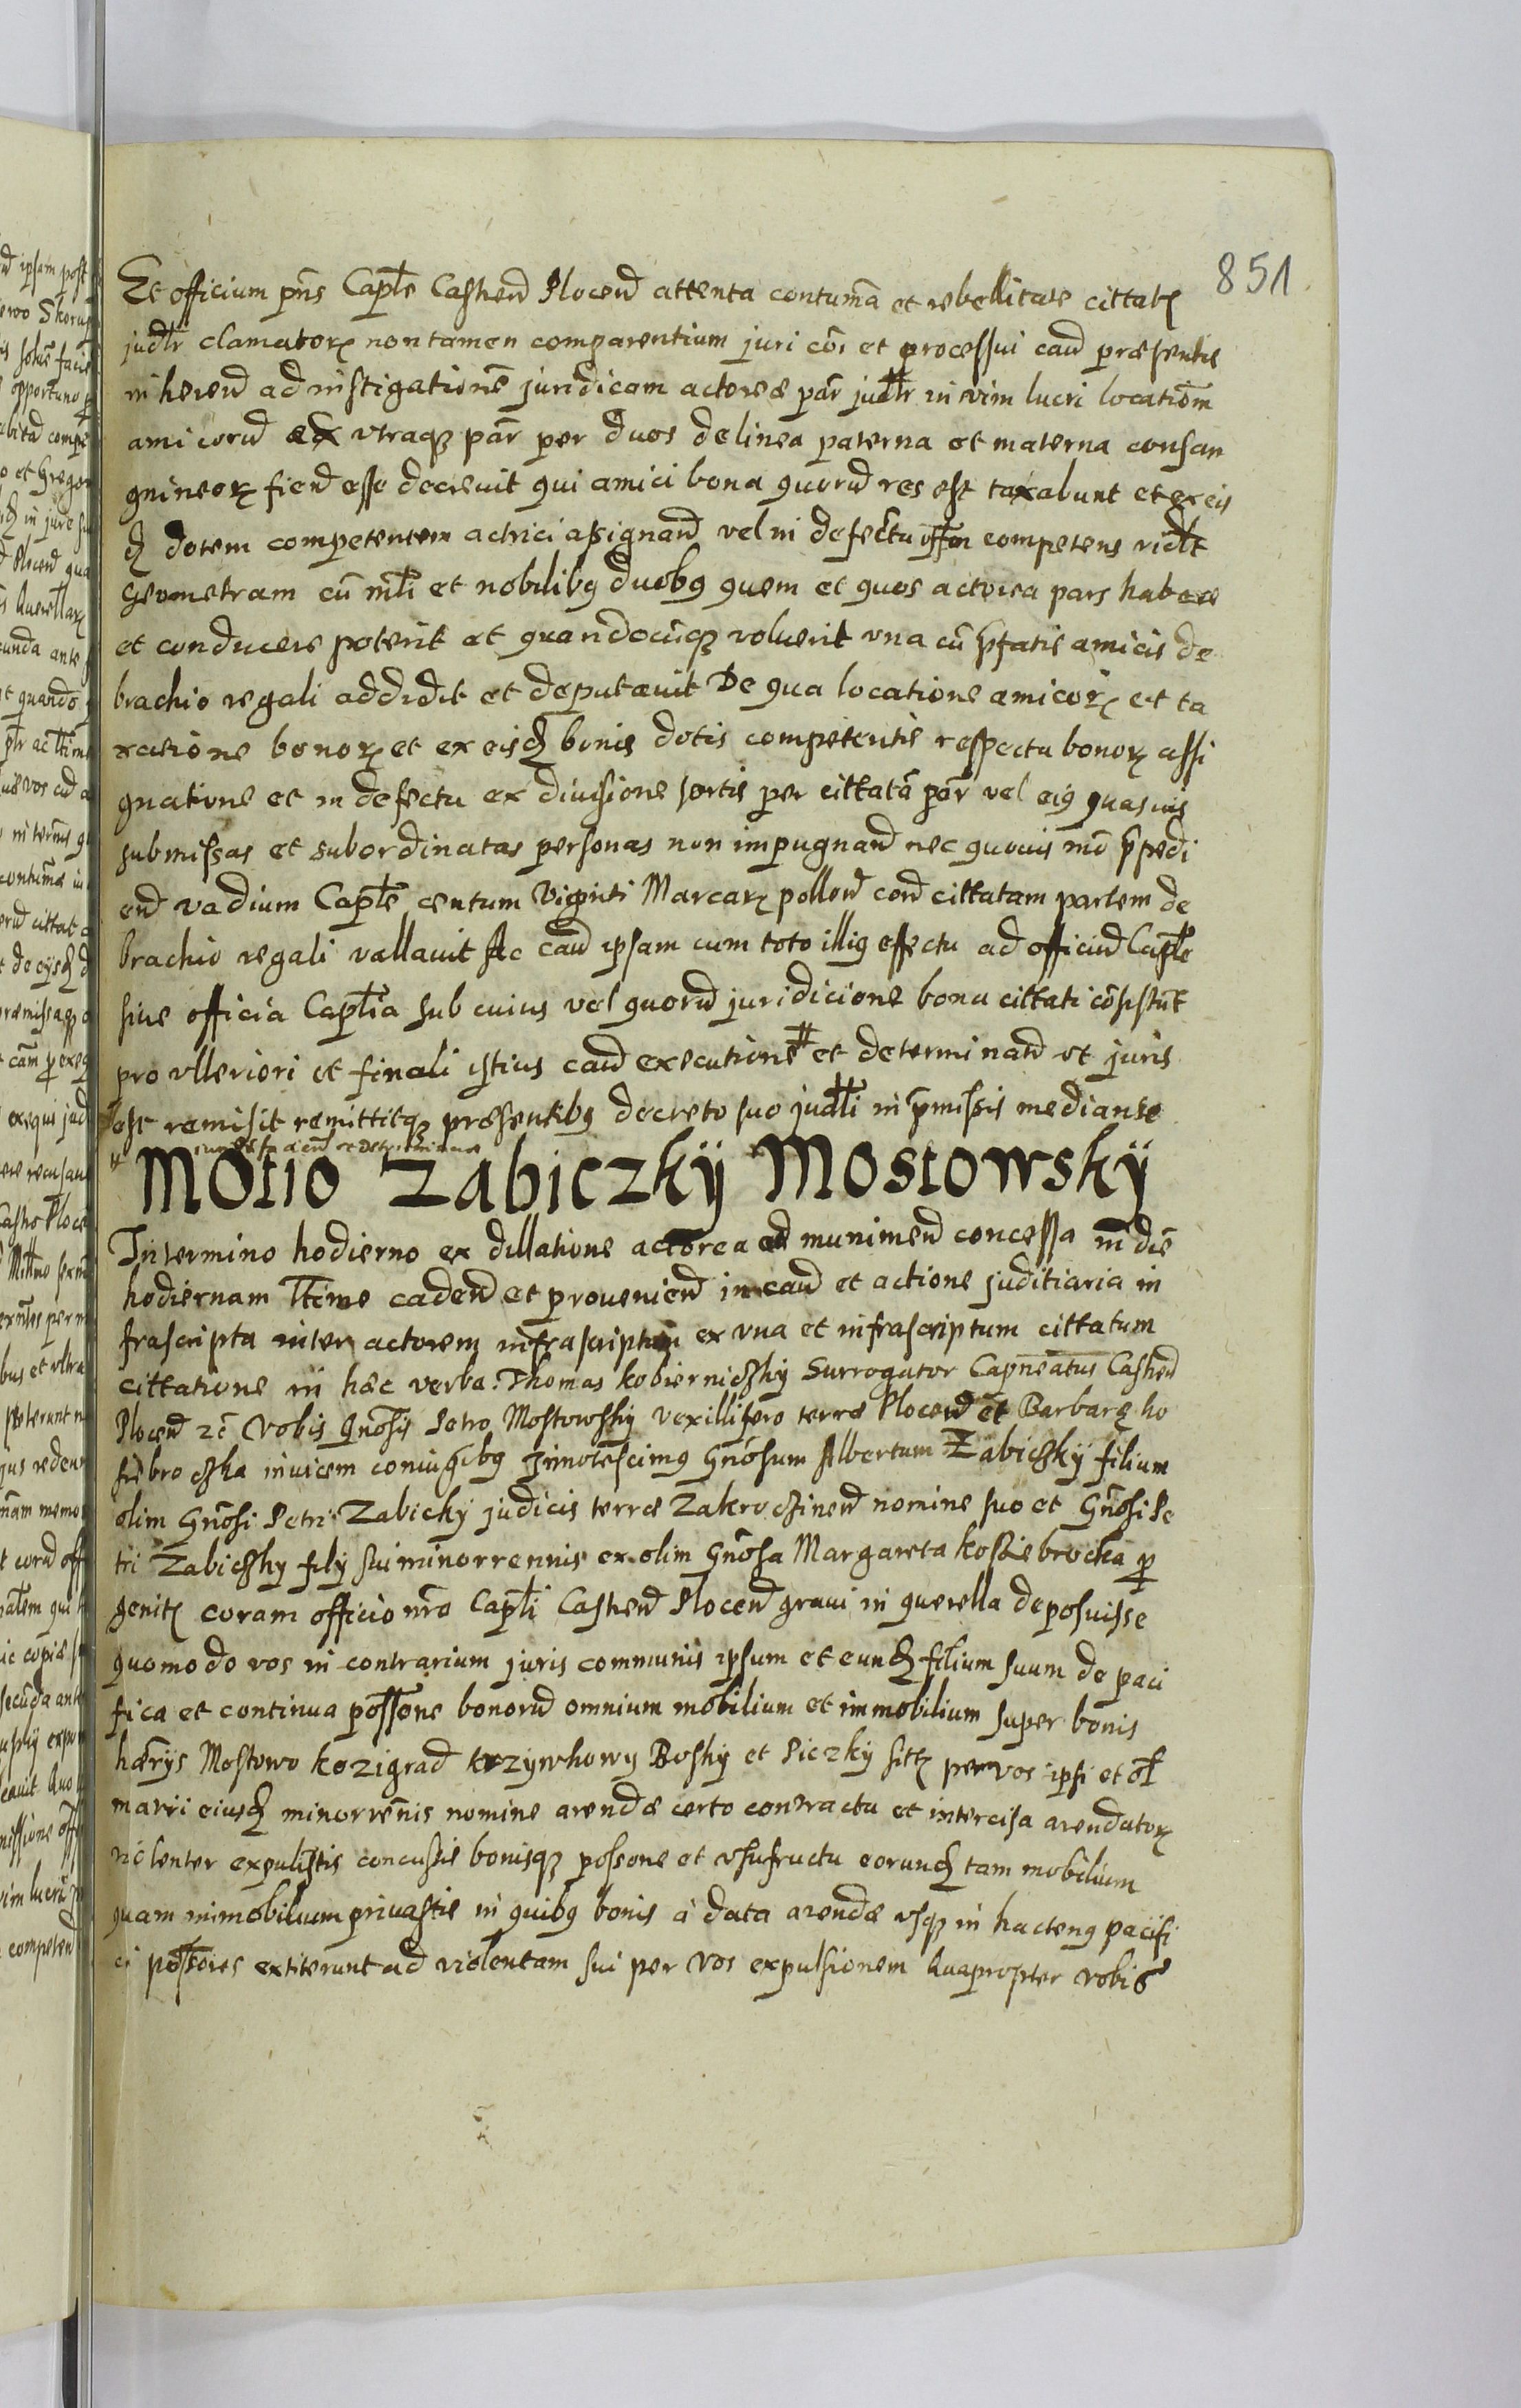 851
Et officium pñs Caplẽ Castreñ Ploceñ attenta contumã et rebellitate cittatȝ
judłr clamatorȝ non tamen comparentium juri cõi et processui cauŝ præsentis
inhereñ ad instigationẽ juridicam actoreæ pãr judłr in vim lucri locatiõm
amicorũ ex vtraqȝ pãr per duos de linea paterna et materna consan
guineorȝ fienđ esse decrevit qui amici bona quorũ res est taxabunt et ex eis
đ dotem competentem actrici assignanđ vel in defectu offm competens vidłt
Geometram cũ młi et nobilibȝ duobȝ quem et quos actorea pars habere
et conducere poterit et quandocũqȝ voluerit vna cũ p̃fatis amicis de
brachio regali addidit et deputavit De qua locatione amicorȝ et ta
xatione bonorȝ et ex eisđ bonis dotis competentis respectu bonorȝ assi
gnatione et in defectu ex diuisione sortis per cittatã pãr vel eiȝ quasuis
submissas et subordinatas personas non impugnanđ nec quouis mõ p̃pedi
enđ vadium Caplẽ centum Viginti Marcarȝ polloñ conŧ cittatam partem de
brachio regali vallauit Ac cauŝ ipsam cum toto illiȝ effectu ad officiũ Caplẽ
siue officia Caplĩa sub cuius vel quorũ juridicione bona cittati cõsistũt
pro vlteriori et finali istius cauŝ executione et determinatĩõ vt juris
est remisit remittitqȝ præsentibȝ decreto suo judłli in p̃missis mediante
Motio Zabiczkÿ Mostowskÿ
In termino hodierno ex dillatione actorea ad munimenđ concessa in diẽ
hodiernam łtime cadenđ et provenienđ in cauŝ et actione juditiaria in
frascripta inter actorem infrascriptum ex vna et infrascriptum cittatum
cittatione in hæc verba. Thomas kobierniczky Surrogator Capneatus Castreñ
Ploceñ rẽ Vobis Gnõsis Petro Mostowsky vexillifero terræ Ploceñ et Barbarę ko
ssiebroczka inuicem coniugibȝ Innotescimȝ Gnõsum Albertum Zabiczkÿ filium
olim Gnõsi Petri Zabicky judicis terræ Zakroczimeñ nomine suo et Gnõsi Pe
tri Zabiczky filÿ sui minorrennis ex olim Gnõsa Margareta kossiebrocka p
genitȝ coram officio nr̃o Capłi Castreñ Ploceñ graui in querella deposuisse
quomodo vos in contrarium juris communis ipsum et eunđ filium suum de paci
fica et continua possõne bonorũ omnium mobilium et immobilium super bonis
hærÿs Mostowo kozigrađ krzywkowy Boskÿ et Piczkÿ sitȝ per vos ipsi et oł
matri eiusđ minorrẽnis nomine arendæ certo contractu et intercisa arendatorȝ
violenter expulistis concussis bonisqȝ possone et vsufructu eorunđ tam mobilium
quam immobilium privastis in quibȝ bonis à data arendæ vsqȝ in hactenȝ pacifi
ci possores extiterunt ad violentam sui per vos expulsionem Quapropter vobis